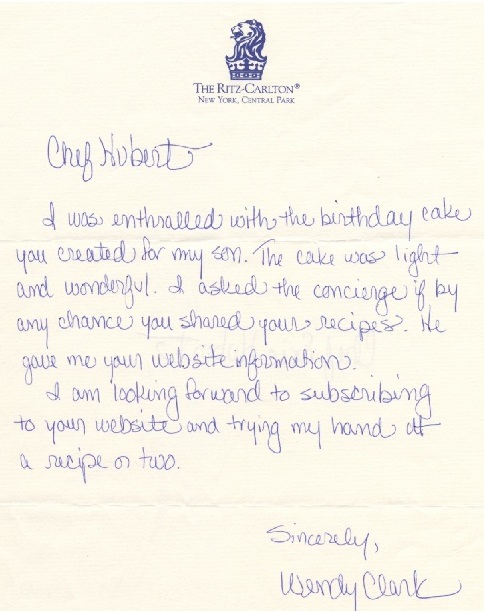 THE RITZ-CARLTON®
NEW YORK, CENTRAL PARK
Chef Hubert
I was enthralled with the birthday cake
you created for my son. The cake was light
and wonderful. I asked the concierge if by
any chance you shared your recipes. He
gave me your website information.
I am looking forward to subscribing
to your website and trying my hand at
a recipe or two.
Sincerely,
Wendy Clark